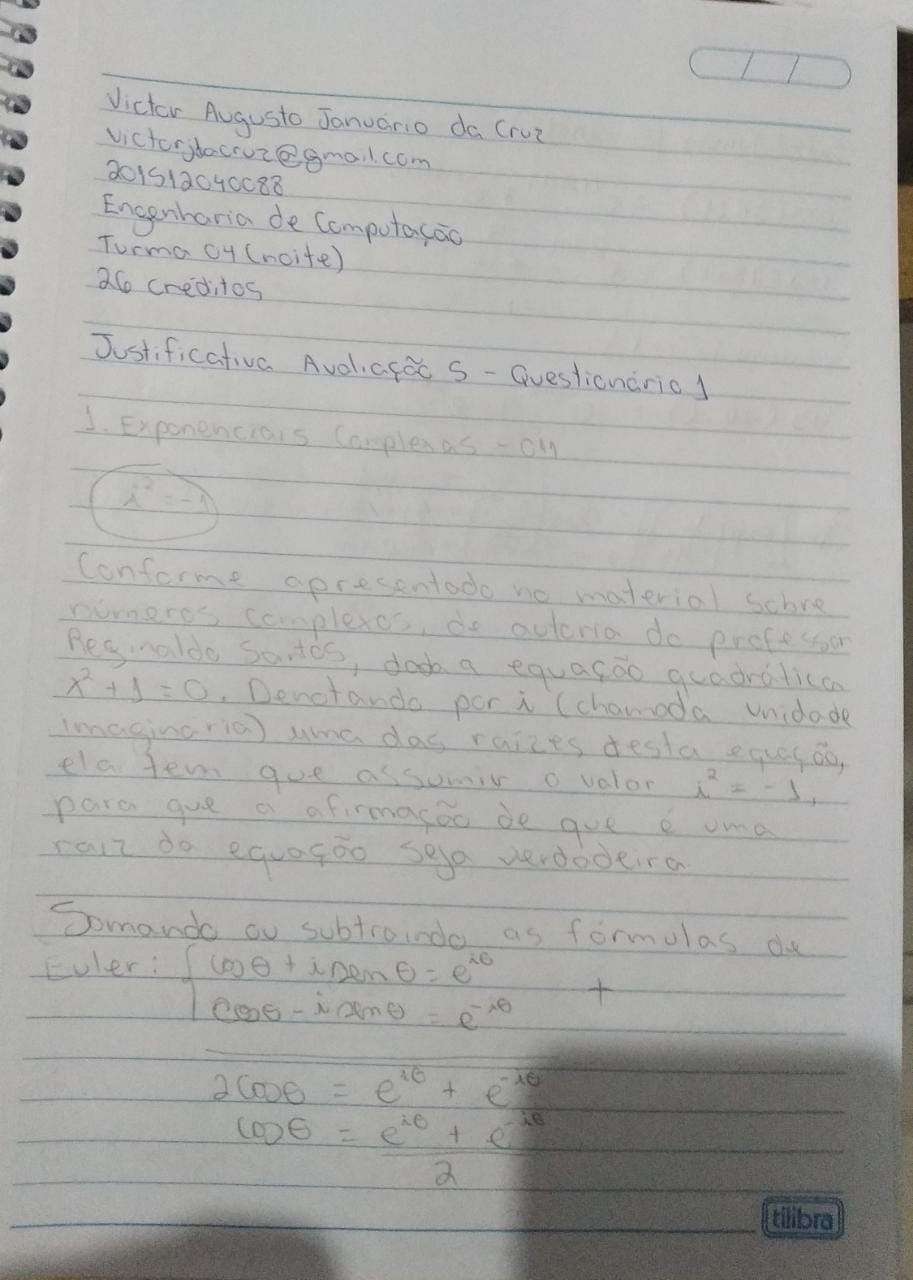 Victor Augusto Januário da Cruz
victorjdacruz@gmail.com
201512040088
Engenharia de Computação
Turma 04 (noite)
26 créditos
Justificativa Avaliação 5 - Questionário 1
1. Exponenciais Complexas - 011
i² = -1
Conforme apresentado no material sobre
números complexos, de autoria do professor
Reginaldo Santos, dada a equação quadrática
x² + 1 = 0. Denotando por i (chamada unidade
imaginária) uma das raízes desta equação,
ela tem que assumir o valor i² = -1,
para que a afirmação de que é uma
raiz da equação seja verdadeira.
Somando ou subtraindo as fórmulas de
Euler: { cosθ + i senθ = e^{iθ}
cosθ - i senθ = e^{-iθ} +
2cosθ = e^{iθ} + e^{-iθ}
cosθ = e^{iθ} + e^{-iθ}
2
tilibra